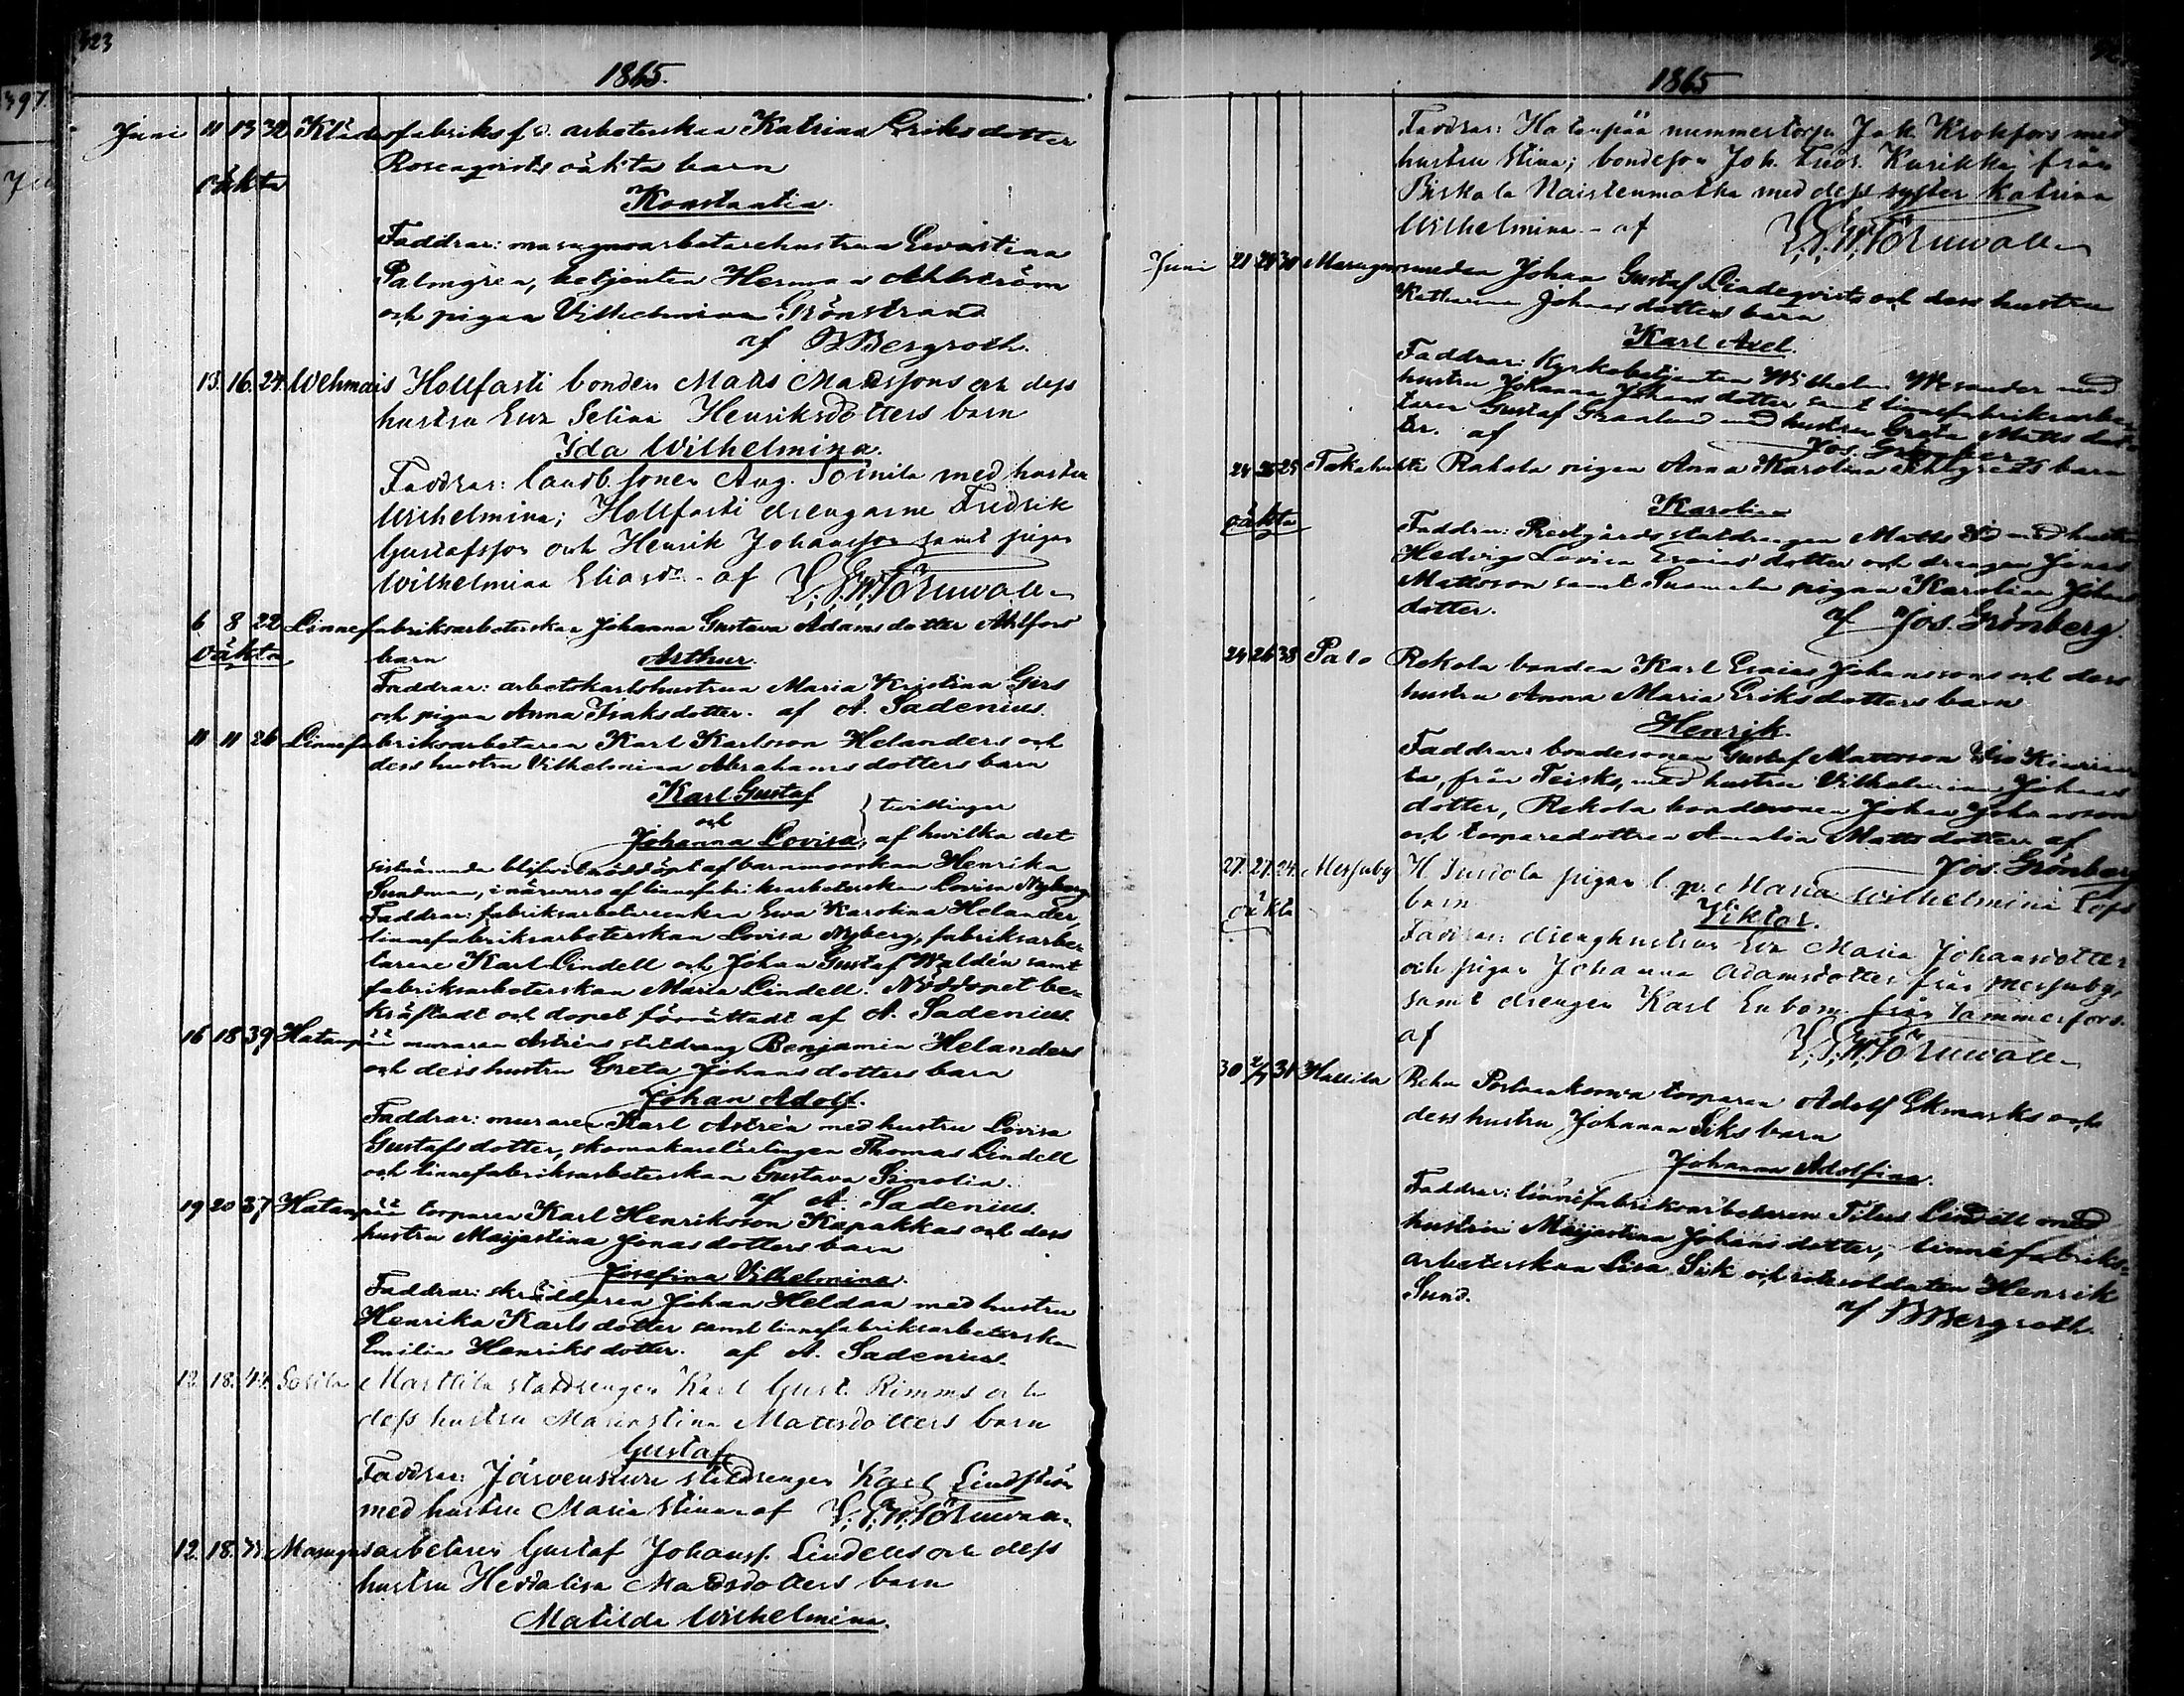 323
1865.
397.
Juni 11 13 32 Klädesfabriks f.d. arbeterskan Katrina Eriksdotter
Rosenqvists oäkta barn
oäkta
Konstantin.
Faddrar: masugnsarbetarehustrun Evastina
Palmgren, betjenten Herman Ahlström
och pigan Vilhelmina Grönstrand
af BBergroth.
15. 16. 24. Wehmais Hollfasti bonden Matts Mattssons och dess
hustru Eva Selina Henriksdotters barn
Ida Wilhelmina.
Faddrar: landb. sonen Aug. Toinila med hustru
Wilhelmina; Hollfasti drengarne Fredrik
Gustafsson och Henrik Johansson samt pigan
Wilhelmina Eliasdr. - af
6 8 22 Linnefabriksarbeterskan Johanna Gustava Adamsdotter Ahlfors
oäkta barn Arthur.
Faddrar: arbetskarlshustrun Maria Kristina Gers
och pigan Anna Isaksdotter. af A. Sadenius.
11 11 26 Linnefabriksarbetaren Karl Karlsson Helanders och
dess hustru Vilhelmina Abrahamsdotters barn
Karl Gustaf
och } tvillingar
Johanna Lovisa, af hwilka det
sistnämnda blifvit nöddöpt af barnmorskan Henrika
Sundman, i närvaro af linnefabriksarbeterskan Lovisa Nyberg
Faddrar: fabriksarbeterskan Ewa Karolina Helander,
linnefabriksarbeterskan Lovisa Nyberg, fabriksarbe-
tarene Karl Lindell och Johan Gustaf Waldén samt
fabriksarbeterskan Maria Lindell. Nöddopet be-
kräftadt och dopet förrättadt af A. Sadenius.
16 18 39 Hatanpää muraren Astréns statdreng Benjamin Helanders
och dess hustru Greta Johansdotters barn
Johan Adolf.
Faddrar: muraren Karl Astrén med hustru Lovisa
Gustafsdotter, skomakarelärlingen Thomas Lindell
och linnefabriksarbeterskan Gustava Simolin.
af A. Sadenius.
19 20 37 Hatanpää torparen Karl Henriksson Kapakkas och dess
hustru Maijastina Jonasdotters barn
Josefina Vilhelmina.
Faddrar: skräddaren Johan Heldan med hustru
Henrika Karlsdotter samt linnefabriksarbeterskan
Emilia Henriksdotter. af A. Sadenius.
12. 18. Marttila statdrengen Karl Gust. Rimms och
dess hustru Mariastina Mattsdotters barn
Gustaf
Faddrar: Järvensivu statdrengen Karl Lindström
med hustru Maria Stina af
12. 18. Masugnsarbetaren Gustaf Johanss. Lindells och dess
hustru Heddalisa Mattsdotters barn
Matilda Wilhelmina.
1865
Faddrar: Hatanpää nummertorp. Joh. Krokfors med
hustru Stina; bondeson Joh. Fredr. Kurikka från
Birkala Naistenmatka med dess syster Katrina
Wilhelmina - af
Juni 21 24 30 Masugnssmeden Johan Gustaf Lindeqvists och dess hustru
Katharina Johansdotters barn
Karl Axel.
Faddrar: Kyrkobetjenten Wilhelm Wesander med
hustru Johanna Johansdotter samt linnefabriksarbe-
taren Gustaf Granlund med hustru Greta Matts dot-
ter. af Jos. Grönberg
24 25 25 Takahuhti Rahola pigan Anna Karolina barn
oäkta Karolina
Faddrar: Prestgårds statdrengen Matts med hustru
Hedvig Lovisa Esaiasdotter och drengen Jonas
Mattsson samt pigan Karolina Johans
dotter. af Jos. Grönberg.
24 26 38 Palo Rekola bonden Karl Esaias Johanssons och dess
hustru Anna Maria Eriksdotters barn
Henrik.
Faddrar: bondesonen Gustaf Mattsson
ta, från Teisko, med hustru Vilhelmina Johans
dotter, Rekola bondesonen Johan Johansson
och torparedottren Amalia Mattsdotter af
Jos. Grönberg
27. 27. 24. Messuby pigan Maria Wilhelmina
oäkta barn Viktor.
Faddrar: drenghustrun Eva Maria Johansdotter
och pigan Johanna Adamsdotter från Messuby,
samt drengen Karl Enbom från Tammerfors.
af
30 2/7 31 Hallila torparen Adolf Ekmarks och
dess hustru Johanna Siks barn
Johanna Adolfina.
Faddrar: linnefabriksarbetaren Titus Lindell med
hustru Maijastina Johansdotter, linnefabriks-
arbeterskan Lisa Sik och rotesoldaten Henrik
Sund. af BBergroth.